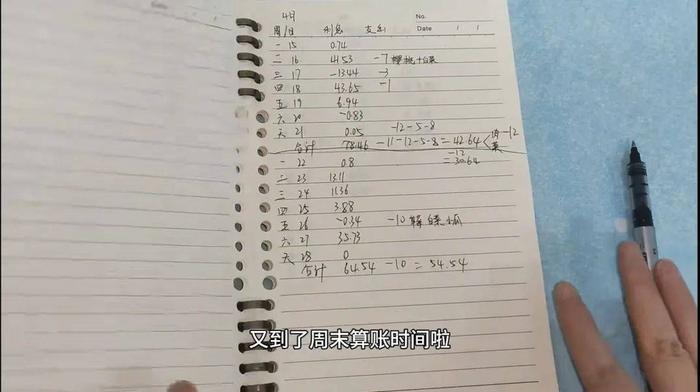 4月
No.
Date / /
周/日 利息 支出
一 15 0.74
二 16 41.53 -7 樱桃+白菜
三 17 -13.44 -3
四 18 43.65 -1
五 19 6.94
六 20 -0.83
天 21 0.05 -12-5-8
合计 78.46 -11-12-5-8=42.64 菜 -12
-12
=30.64
一 22 0.8
二 23 13.11
三 24 11.36
四 25 3.88
五 26 -0.34 -10 白菜
六 27 35.73
天 28 0
合计 64.54 -10 = 54.54
又到了周末算账时间啦